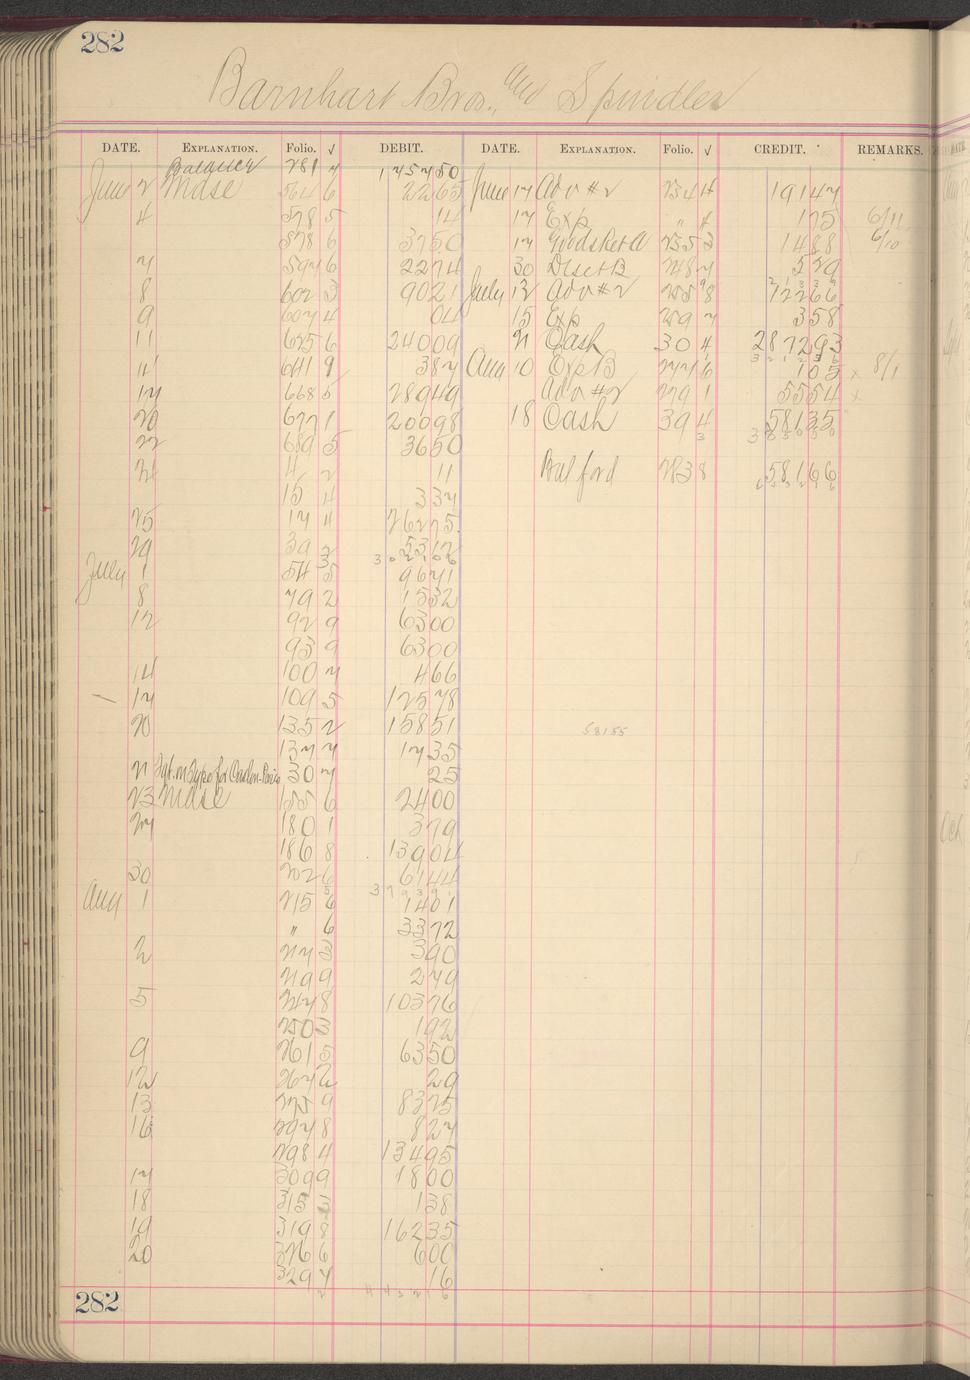 282
Barnhart Bros. and Spindler
DATE. EXPLANATION. Folio. √ DEBIT. DATE. EXPLANATION. Folio. √ CREDIT. REMARKS.
Balance 281 7 175750
June 2 Mdse 564 6 2265 June 17 Adv #2 234 4 19147
4 578 5 14 17 Exp " 4 175 6/11
578 6 3750 17 Goods Ret A 235 3 1488 6/10
7 594 6 2274 30 Disct B 248 7 529
8 602 3 9021 July 12 Adv #2 255 8 12266
9 607 4 04 15 Exp 259 7 358
11 625 6 24009 21 Cash 30 4 287293
11 641 9 387 Aug 10 Exp B 276 105 x 8/1
17 668 5 28949 Adv #2 279 1 5554 x
20 677 1 20098 18 Cash 39 4 58135
22 689 5 3650
24 4 2 11 Bal ford 283 8 58166
15 4 337
25 17 4 26275
29 39 2 5312
July 1 54 5 9671
8 79 2 1532
12 92 9 6300
93 9 6300
14 100 7 466
17 109 5 12578
20 135 2 15851 58155
137 7 1735
21 30 7 25
23 Mdse 155 6 2400
27 180 1 379
186 8 13904
30 202 6 6144
Aug 1 215 6 1401
" 6 3372
2 217 3 390
219 9 279
5 247 8 10376
250 3 192
9 261 5 6350
12 267 2 29
13 275 9 8325
16 294 8 827
298 4 13495
17 309 9 1800
18 315 3 138
19 319 8 16235
20 326 6 600
329 7 16
282